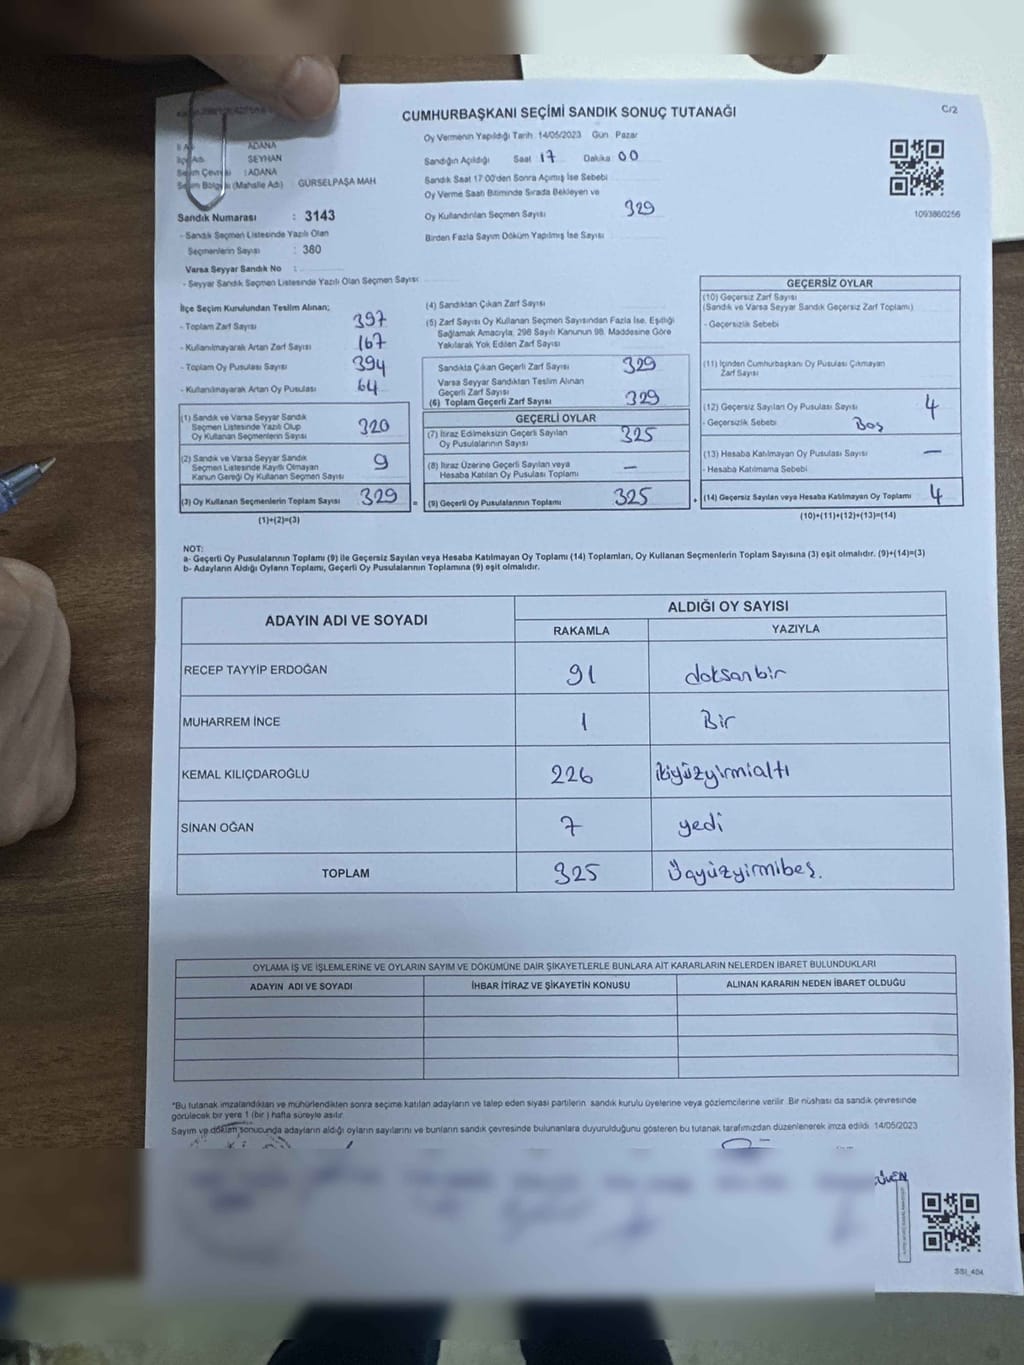 CUMHURBAŞKANI SEÇİMİ SANDIK SONUÇ TUTANAĞI
C/2
Oy Vermenin Yapıldığı Tarih 14/05/2023 Gün Pazar
ADANA
SEYHAN
: ADANA
(Mahalle Adı) GÜRSELPAŞA MAH
Sandık Numarası : 3143
- Sandık Seçmen Listesinde Yazılı Olan
Seçmenlerin Sayısı : 380
Varsa Seyyar Sandık No :
- Seyyar Sandık Seçmen Listesinde Yazılı Olan Seçmen Sayısı
Sandığın Açıldığı Saat 17 Dakika 00
Sandık Saat 17:00'den Sonra Açımış İse Sebebi
Oy Verme Saati Bitiminde Sırada Bekleyen ve
Oy Kullandırılan Seçmen Sayısı 329
Birden Fazla Sayım Döküm Yapılmış İse Sayısı
1093860256
İlçe Seçim Kurulundan Teslim Alınan;
- Toplam Zarf Sayısı 397
- Kullanılmayarak Artan Zarf Sayısı 167
- Toplam Oy Pusulası Sayısı 394
- Kullanılmayarak Artan Oy Pusulası 64
(1) Sandık ve Varsa Seyyar Sandık
Seçmen Listesinde Yazılı Olup
Oy Kullanan Seçmenlerin Sayısı 320
(2) Sandık ve Varsa Seyyar Sandık
Seçmen Listesinde Kayıtlı Olmayan
Kanun Gereği Oy Kullanan Seçmen Sayısı 9
(3) Oy Kullanan Seçmenlerin Toplam Sayısı 329 =
(1)+(2)=(3)
(4) Sandıktan Çıkan Zarf Sayısı
(5) Zarf Sayısı Oy Kullanan Seçmen Sayısından Fazla İse, Eşitliği
Sağlamak Amacıyla, 298 Sayılı Kanunun 98. Maddesine Göre
Yakılarak Yok Edilen Zarf Sayısı
Sandıkta Çıkan Geçerli Zarf Sayısı 329
Varsa Seyyar Sandıktan Teslim Alınan
Geçerli Zarf Sayısı
(6) Toplam Geçerli Zarf Sayısı 329
GEÇERLİ OYLAR
(7) İtiraz Edilmeksizin Geçerli Sayılan
Oy Pusulalarının Sayısı 325
(8) İtiraz Üzerine Geçerli Sayılan veya
Hesaba Katılan Oy Pusulası Toplamı —
(9) Geçerli Oy Pusulalarının Toplamı 325 +
GEÇERSİZ OYLAR
(10) Geçersiz Zarf Sayısı
(Sandık ve Varsa Seyyar Sandık Geçersiz Zarf Toplamı)
- Geçersizlik Sebebi
(11) İçinden Cumhurbaşkanı Oy Pusulası Çıkmayan
Zarf Sayısı
(12) Geçersiz Sayılan Oy Pusulası Sayısı 4
- Geçersizlik Sebebi Boş
(13) Hesaba Katılmayan Oy Pusulası Sayısı —
- Hesaba Katılmama Sebebi
(14) Geçersiz Sayılan veya Hesaba Katılmayan Oy Toplamı 4
(10)+(11)+(12)+(13)=(14)
NOT:
a- Geçerli Oy Pusulalarının Toplamı (9) ile Geçersiz Sayılan veya Hesaba Katılmayan Oy Toplamı (14) Toplamları, Oy Kullanan Seçmenlerin Toplam Sayısına (3) eşit olmalıdır. (9)+(14)=(3)
b- Adayların Aldığı Oyların Toplamı, Geçerli Oy Pusulalarının Toplamına (9) eşit olmalıdır.
ADAYIN ADI VE SOYADI ALDIĞI OY SAYISI
RAKAMLA YAZIYLA
RECEP TAYYİP ERDOĞAN 91 doksanbir
MUHARREM İNCE 1 Bir
KEMAL KILIÇDAROĞLU 226 ikiyüzyirmialtı
SİNAN OĞAN 7 yedi
TOPLAM 325 Üçyüzyirmibeş.
OYLAMA İŞ VE İŞLEMLERİNE VE OYLARIN SAYIM VE DÖKÜMÜNE DAİR ŞİKAYETLERLE BUNLARA AİT KARARLARIN NELERDEN İBARET BULUNDUKLARI
ADAYIN ADI VE SOYADI İHBAR İTİRAZ VE ŞİKAYETİN KONUSU ALINAN KARARIN NEDEN İBARET OLDUĞU
*Bu tutanak imzalandıktan ve mühürlendikten sonra seçime katılan adayların ve talep eden siyasi partilerin sandık kurulu üyelerine veya gözlemcilerine verilir. Bir nüshası da sandık çevresinde
görülecek bir yere 1 (bir) hafta süreyle asılır.
Sayım ve döküm sonucunda adayların aldığı oyların sayılarını ve bunların sandık çevresinde bulunanlara duyurulduğunu gösteren bu tutanak tarafımızdan düzenlenerek imza edildi. 14/05/2023